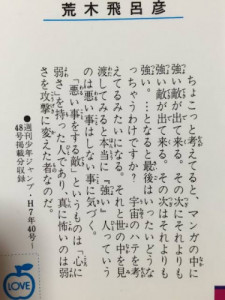 荒木飛呂彦
ちょこっと考えてると、マンガの中に
強い敵が出て来る。次にそれよりも
強い敵が出て来る。その次はそれよりも
強い。…となると最後はいったいどうな
っちゃうわけですか？ 宇宙のハテを考
えてるみたいになる。それと世の中を見
渡してみると本当に「強い」人っていう
のは悪い事はしない事に気づく。
「悪い事をする敵」というものは「心に
弱さ」を持った人であり、真に怖いのは弱
さを攻撃に変えた者なのだ。
●週刊少年ジャンプ・H7年40号〜
48号掲載分収録
LOVE